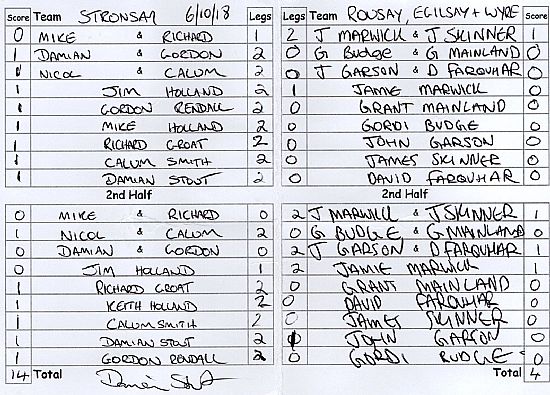 Score Team STRONSAY 6/10/18 Legs Legs Team ROUSAY, EGILSAY + WYRE Score
0 MIKE & RICHARD 1 2 J MARWICK & J SKINNER 1
1 DAMIAN & GORDON 2 0 G BUDGE & G MAINLAND 0
1 NICOL & CALUM 2 0 J GARSON & D FARQUHAR 0
1 JIM HOLLAND 2 1 JAMIE MARWICK 0
1 GORDON RENDALL 2 0 GRANT MAINLAND 0
1 MIKE HOLLAND 2 0 GORDI BUDGE 0
1 RICHARD CROAT 2 0 JOHN GARSON 0
1 CALUM SMITH 2 0 JAMES SKINNER 0
1 DAMIAN STOUT 2 0 DAVID FARQUHAR 0
2nd Half 2nd Half
0 MIKE & RICHARD 0 2 J MARWICK & J SKINNER 1
1 NICOL & CALUM 2 0 G BUDGE & G MAINLAND 0
0 DAMIAN & GORDON 0 2 J GARSON & D FARQUHAR 1
0 JIM HOLLAND 1 2 JAMIE MARWICK 1
1 RICHARD CROAT 2 0 GRANT MAINLAND 0
1 KEITH HOLLAND 2 0 DAVID FARQUHAR 0
1 CALUM SMITH 2 0 JAMES SKINNER 0
1 DAMIAN STOUT 2 JOHN GARSON 0
1 GORDON RENDALL 2 0 GORDI BUDGE 0
14 Total Total 4